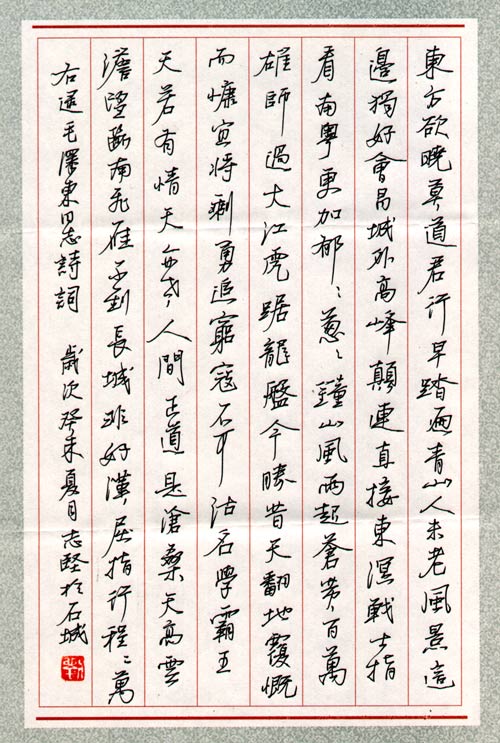 東方欲曉莫道君行早踏遍青山人未老風景這
邊獨好會昌城外高峰顛連直接東溟戰士指
看南粵更加郁〻蔥〻鐘山風雨起蒼黃百萬
雄師過大江虎踞龍盤今勝昔天翻地覆慨
而慷宜將剩勇追窮寇不可沽名學霸王
天若有情天亦老人間正道是滄桑天高雲
澹望斷南飛雁不到長城非好漢屈指行程二萬
右毛澤東同志詩詞 歲次癸未夏月志堅於石城